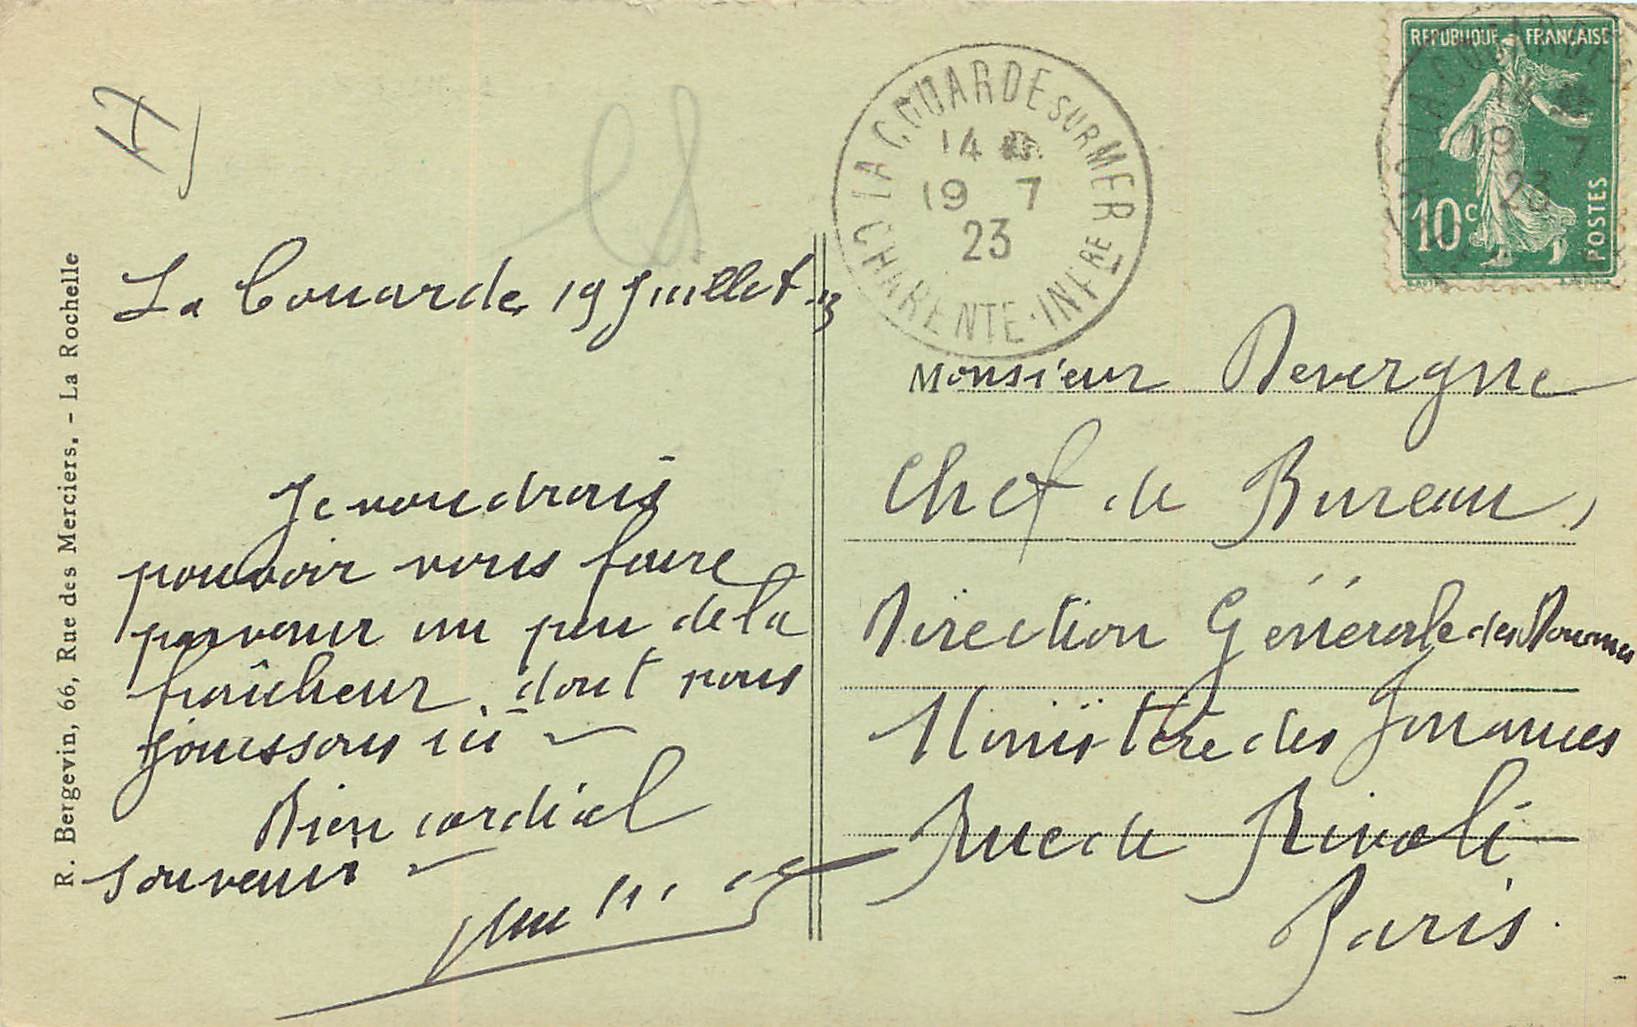 R. Bergevin, 66, Rue des Merciers. - La Rochelle
La Couarde, 19 Juillet 23
Je voudrais
pouvoir vous faire
parvenir un peu de la
fraîcheur dont nous
jouissons ici
Bien cordial
souvenir
LA COUARDE SUR MER
14
19 7
23
CHARENTE-INFRE
REPUBLIQUE FRANÇAISE
10c
POSTES
LA COUARDE
19 7
23
Monsieur Devergne
Chef de Bureau,
Direction Générale des Douanes
Ministère des Finances
Rue de Rivoli
Paris.